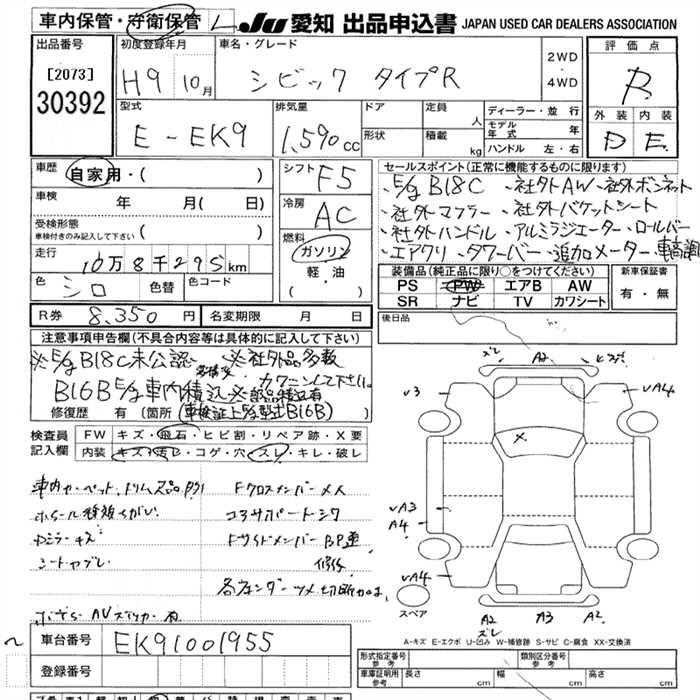 車内保管・守衛保管 し JU 愛知 出品申込書 JAPAN USED CAR DEALERS ASSOCIATION
出品番号 初度登録年月 車名・グレード 評価点
[2073] H9 10月 シビック タイプR 2WD R
30392 4WD
型式 排気量 ドア 定員 ディーラー・並行 外装 内装
E-EK9 1,590cc 人 モデル年式 年 D E
形状 積載 kg ハンドル 左・右
車歴 自家用・( ) シフト F5 セールスポイント(正常に機能するものに限ります)
車検 年 月( 日) 冷房 AC ・E/g B18C ・社外AW ・社外ボンネット
受検形態 ・社外マフラー ・社外バケットシート
車検付きのみ記入して下さい ( ) 燃料 ・社外ハンドル ・アルミラジエーター ・ロールバー
走行 10万8千295km ガソリン ・エアクリ ・タワーバー ・追加メーター ・車高調
色 シロ 色替 色コード 軽・油 ( ) 装備品(純正品に限り○をつけて下さい) 新車保証書
PS PW エアB AW 有・無
SR ナビ TV カワシート
R券 8,350円 名変期限 月 日 後日品
注意事項申告欄(不具合内容等は具体的に記入して下さい)
※E/g B18C未公認 ※社外品多数
カクニンして下さい
B16B E/g車内積込 ※部品積込有
修復歴 有 (箇所 (車検証上E/g型式B16B)
検査員 FW キズ・飛石・ヒビ割・リペア跡・X要
記入欄 内装 キズ・汚レ・コゲ・穴・スレ・キレ・破レ
車内カーペット、トリム欠品 Fクロスメンバーメ人
コアサポートシワ
Fサイドメンバー BP歪
シートヤブレ 修修
各フェンダーツメ切断加工
ズレ A2
v3 vA4
X
vA3
A4
vA4 vA4
スペア A2 A3 A2
ズレ
A-キズ E-エクボ U-凹み W-補修跡 S-サビ C-腐食 XX-交換済
車台番号 EK91001955
登録番号
形式指定番号 参考 類別区分番号 参考
車庫証明用 参考 長さ cm 幅 cm 高さ cm